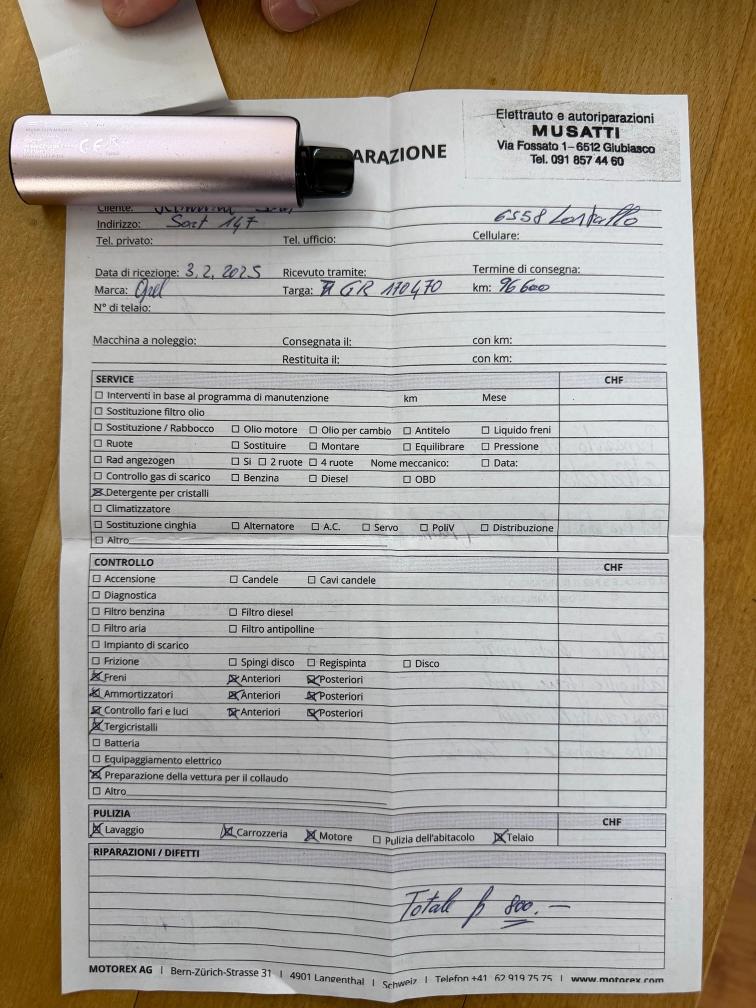 Elettrauto e autoriparazioni
MUSATTI
Via Fossato 1 – 6512 Giubiasco
Tel. 091 857 44 60
ARAZIONE
Cliente:
Indirizzo: Sort 147 6558 Lostallo
Tel. privato: Tel. ufficio: Cellulare:
Data di ricezione: 3.2.2025 Ricevuto tramite: Termine di consegna:
Marca: Opel Targa: GR 170470 km: 96600
N° di telaio:
Macchina a noleggio: Consegnata il: con km:
Restituita il: con km:
SERVICE CHF
☐ Interventi in base al programma di manutenzione km Mese
☐ Sostituzione filtro olio
☐ Sostituzione / Rabbocco ☐ Olio motore ☐ Olio per cambio ☐ Antitelo ☐ Liquido freni
☐ Ruote ☐ Sostituire ☐ Montare ☐ Equilibrare ☐ Pressione
☐ Rad angezogen ☐ Si ☐ 2 ruote ☐ 4 ruote Nome meccanico: ☐ Data:
☐ Controllo gas di scarico ☐ Benzina ☐ Diesel ☐ OBD
☒ Detergente per cristalli
☐ Climatizzatore
☐ Sostituzione cinghia ☐ Alternatore ☐ A.C. ☐ Servo ☐ PoliV ☐ Distribuzione
☐ Altro
CONTROLLO CHF
☐ Accensione ☐ Candele ☐ Cavi candele
☐ Diagnostica
☐ Filtro benzina ☐ Filtro diesel
☐ Filtro aria ☐ Filtro antipolline
☐ Impianto di scarico
☐ Frizione ☐ Spingi disco ☐ Regispinta ☐ Disco
☒ Freni ☒ Anteriori ☒ Posteriori
☒ Ammortizzatori ☒ Anteriori ☒ Posteriori
☒ Controllo fari e luci ☒ Anteriori ☒ Posteriori
☒ Tergicristalli
☐ Batteria
☐ Equipaggiamento elettrico
☒ Preparazione della vettura per il collaudo
☐ Altro
PULIZIA CHF
☒ Lavaggio ☒ Carrozzeria ☒ Motore ☐ Pulizia dell'abitacolo ☒ Telaio
RIPARAZIONI / DIFETTI
Totale fr 800.—
MOTOREX AG | Bern-Zürich-Strasse 31 | 4901 Langenthal | Schweiz | Telefon +41 62 919 75 75 | www.motorex.com